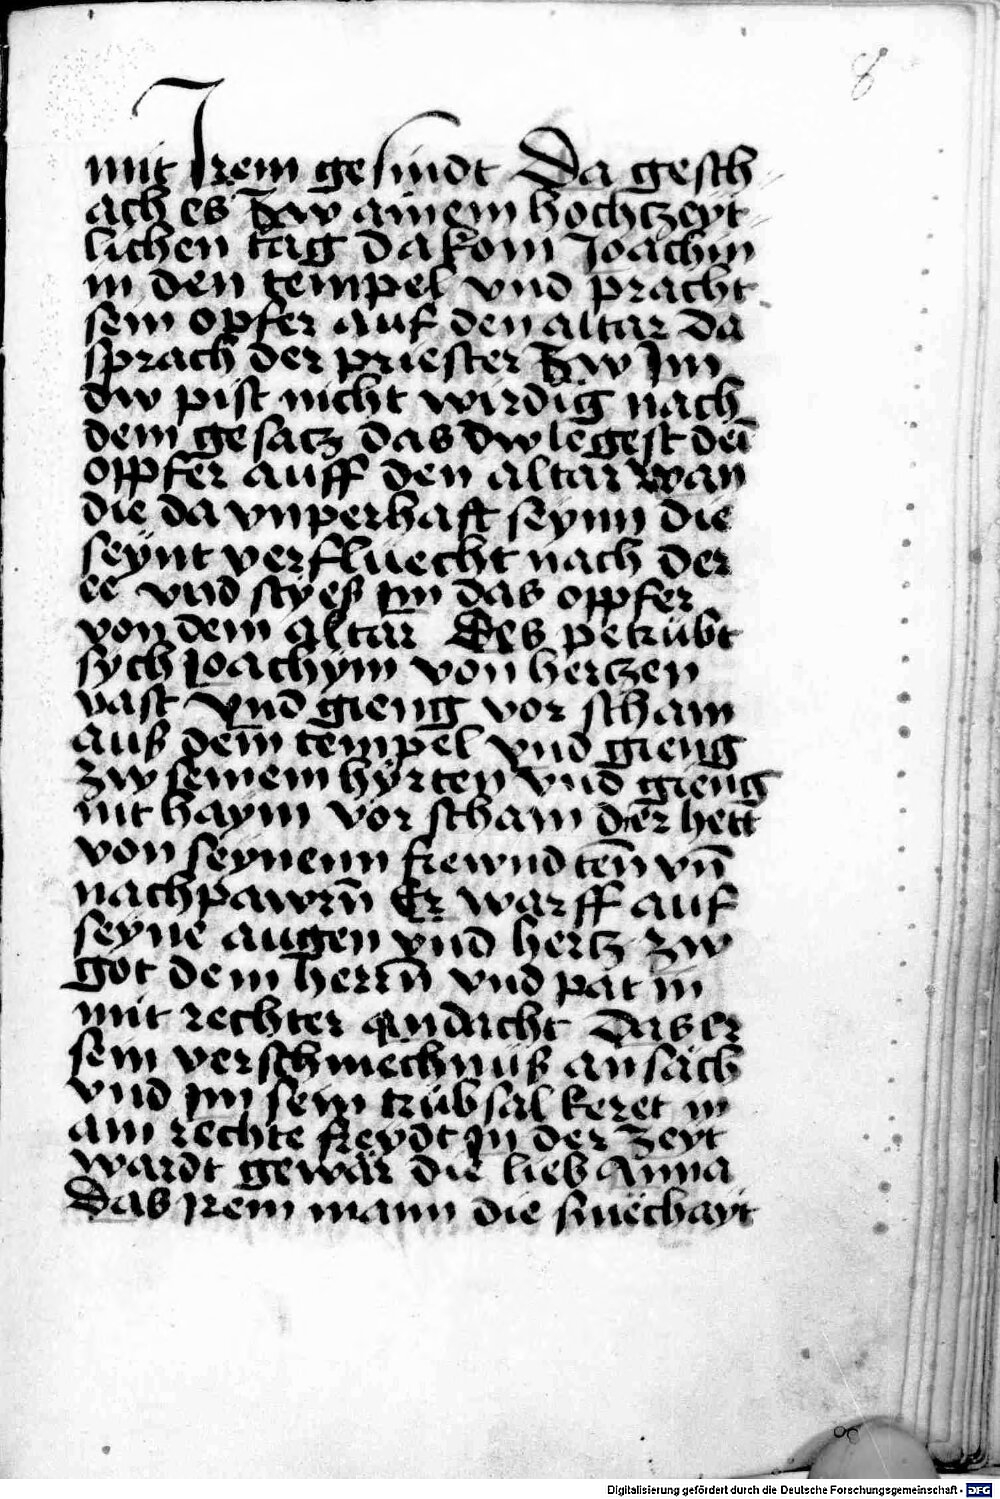 8
mit Jrem gesindt Da gesch
ach es zw ainem hochtzeyt
lichen tag da kom Joachim
in den tempel vnd pracht
sein opfer auf den altar Da
sprach der priester zw Jm
dw pist nicht wirdig nach
dem gesatz das dw legest dei
opfer auff den altar wan
die da vnperhaft seynn die
seynt verfluecht nach der
ee vnd styeß jm das opfer
von dem altar Des petrübt
sych Joachym von hertzen
vast vnd gieng vor scham
auß dem tempel vnd gieng
zw seinem hyrten vnd gieng
nit haym vor scham der hett
von seynenn frewnd ten vn̄
nachpawrn̄ Er warff auf
seyne augen vnd hertz zw
got dem herrn̄ vnd pat in
mit rechter andacht Das er
sein verschmechnüß ansäch
vnd jm sein trübsal keret in
ain rechte freydt Jn der zeyt
wardt gewar die lieb Anna
Das jrem mann die smechayt
Digitalisierung gefördert durch die Deutsche Forschungsgemeinschaft - DFG